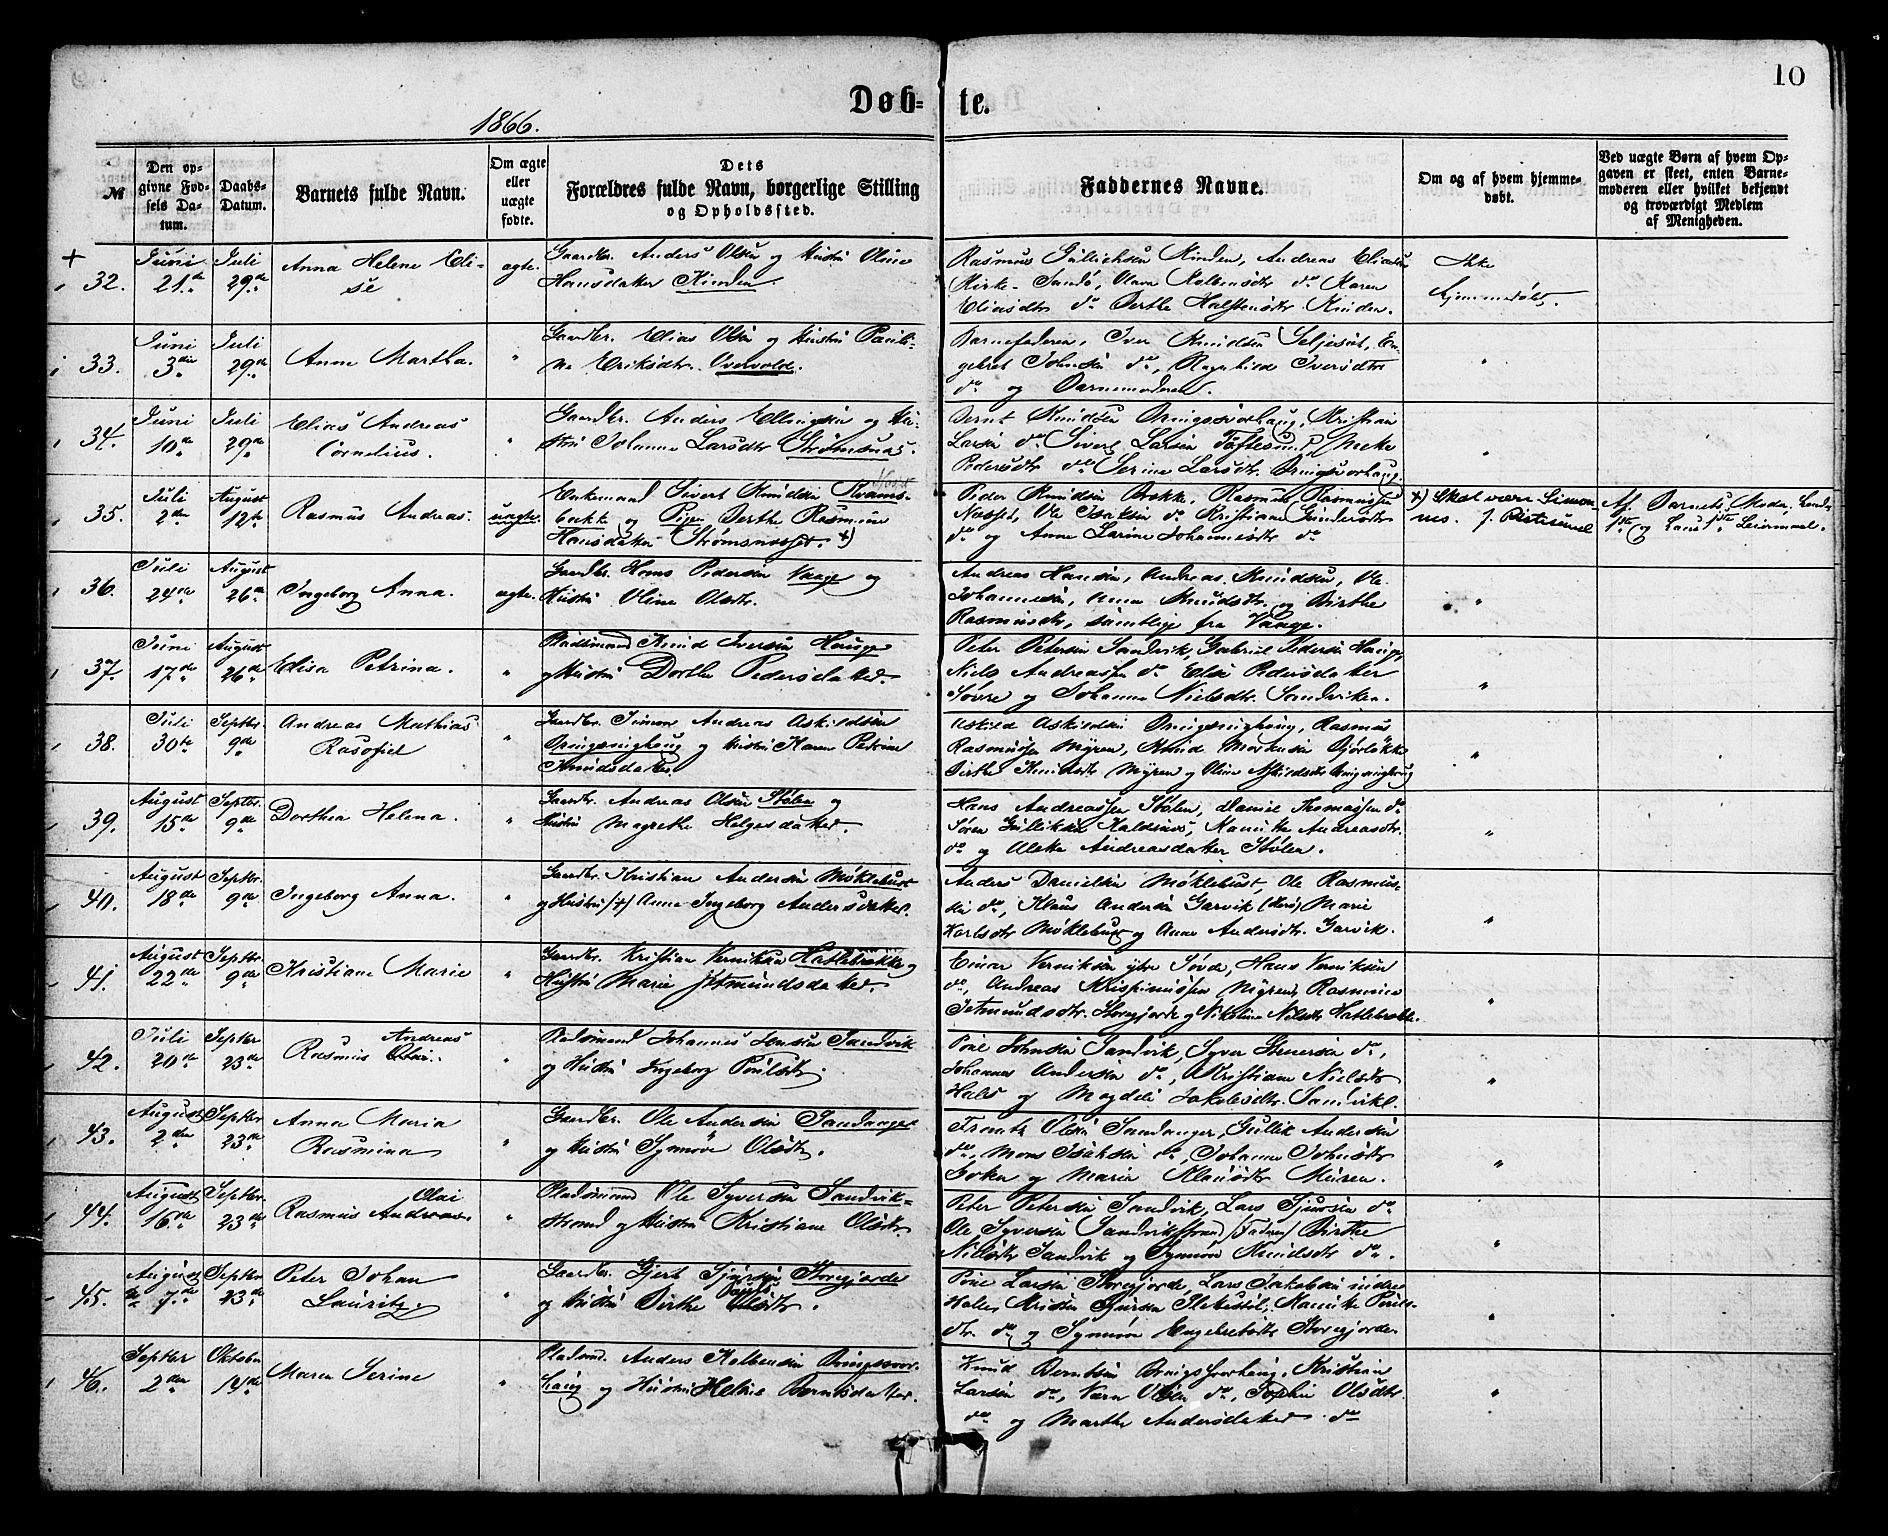 10
Døb- te.
1866.
№
Den opgivne Fødsels Datum.
Daabs-Datum.
Barnets fulde Navn.
Om ægte eller uægte fødte.
Dets Forældres fulde Navn, borgerlige Stilling og Opholdssted.
Faddernes Navne.
Om og af hvem hjemmedøbt.
Ved uægte Børn af hvem Opgaven er skeet, enten Barnemoderen eller hvilket bekjendt og troværdigt Medlem af Menigheden.
+ 32. Juni 21de Juli 29de Anna Helene Elise ægte. Gaardbr. Anders Olsen og Hustru Oline
Hansdatter Kinden.
Rasmus Gullichsen Kinden, Andreas Eliassen
Kirke-Sandø, Karen
Eliasdtr do Berthe Kinden.
Ikke
hjemmedøbt.
33. Juni 3die Juli 29de Anne Martha. " Gaardbr. Elias Olsen og Hustru Pauline
Eriksdtr. Overvolde.
Barnefaderen, Iver Knudsen Seljeset, Engebret
Johnsen do, Ragnhild Iversdtr
do og Barnemoderen. "
34. Juni 10de Juli 29de Elias Andreas
Cornelius. " Gaardbr. Anders Ellingsen og Hustru
Johanne Larsdtr Strømsnæs.
Bernt Knudsen Kristian
Larsen do Sivert Larsen
Pedersdtr do Serine Larsdtr. "
35. Juli 2den August 12te Rasmus Andreas. uægte. Enkemand Sivert Knudsen Kvamsbakke
og Pige Berthe Rasmine
Hansdatter Strømsnæsset. +)
Peder Knudsen Brekke, Rasmus Rasmussen
Næsset, Ole Isaksen do Kristiane Gundersdtr
do og Anne Larine Johannesdtr do
+) Skal være Simonnes.
Af Barnets Moder,
1ste og 1ste Leiermaal.
36. Juli 24de August 26de Ingeborg Anna. ægte. Gaardbr. Hans Pedersen Vaage og
Hustru Oline Olsdtr.
Andreas Hansen, Andreas Knudsen, Ole
Johannesen, Anna Knudsdtr. og Birthe
Rasmusdtr, samtlige fra Vaage. "
37. Juni 17de August 26de Elisa Petrina. " Pladsmand Knud Iversen Hauge
og Hustru Dorthe Pedersdatter.
Peter Petersen Sandvik, Gabriel Pedersen Hauge,
Niels Andreassen do Else Pedersdatter
Søvre og Johanne Nielsdtr Sandviken. "
38. Juli 30te Septbr. 9de Andreas Mathias
Rasofiel " Gaardbr. Simon Andreas Askildsen
og Hustru Karen Petrine
Knudsdatter
Askild Askildsen Rasmus
Rasmussen Myren, Knud Markusen
Birthe Knudsdtr Myren og Oline Askildsdtr "
39. August 15de Septbr. 9de Dorthea Helena. " Gaardbr. Andreas Olsen Stølen og
Hustru Magrethe Helgesdatter.
Hans Andreassen Stølen, Daniel Thomassen do
Søren Gulliksen Andreasdtr.
do og Andreasdatter Stølen. "
40. August 18de Septbr. 9de Ingeborg Anna. " Gaardbr. Kristian Andersen Møklebust
og Hustru (+) Anne Ingeborg Andersdatter.
Anders Danielsen Møklebust, Ole Rasmussen
do, Klaus Andersen Garvik (Herø) Marie
Karlsdtr Møklebust og Anne Andersdtr. Garvik. "
41. August 22de Septbr. 9de Kristiane Marie " Gaardbr. Kristian Verniksen Hatlebrekke og
Hustru Marie Jetmundsdatter.
Einar Verniksen ytre Søvde, Hans Verniksen
do, Andreas Myren, Rasmine
Jetmundsdtr. Storegjorde og Nikoline Nielsdtr Hatlebrekke. "
42. Juli 20de Septbr 23de Rasmus Andreas " Pladsmand Johannes Jensen Sandvik
og Hustru Ingeborg Poulsdtr.
Poul Johnsen Sandvik, Syver do,
Johannes Andersen do, Kristiane Nielsdtr
og Magdeli Jakobsdtr. Sandvik. "
43. August 2den Septbr. 23de Anna Maria
Rasmina " Gaardbr. Ole Andersen Sandanger
og Hustru Synnøve Olsdtr.
Frants Olsen Sandanger, Gullik Andersen
do, Mons Isaksen do, Johanne Johnsdtr
og Maria Klausdtr Muren. "
44. August 16de Septbr. 23de Rasmus Olai " Pladsmand Ole Syversen Sandvikstrand
og Hustru Kristiane Olsdtr.
Peter Petersen Sandvik, Lars Sjursen do
Ole Syversen Sandvikstrand (Faderen) Birthe
Nielsdtr Sandvik og Synnøve Knudsdtr do. "
45. August 7de Septbr 23de Peter Johan
Lauritz. " Gaardbr. Gjert Sjursen Storegjorde
og Hustru Birthe
Poul Larsen Storegjorde, Lars Jakobsen indre
Halle, Kristen Sjursen Flekkestøl,
do og Synnøve Engebretsdtr Storegjorde. "
46. Septbr 2den Oktober 14de Maren Serine " Pladsmd. Anders Kolbensen
og Hustru Berntsdatter.
Knud Berntsen Kristian
Larsen do, Olsen do, Sophie Olsdtr.
do og Marthe Andersdatter do "